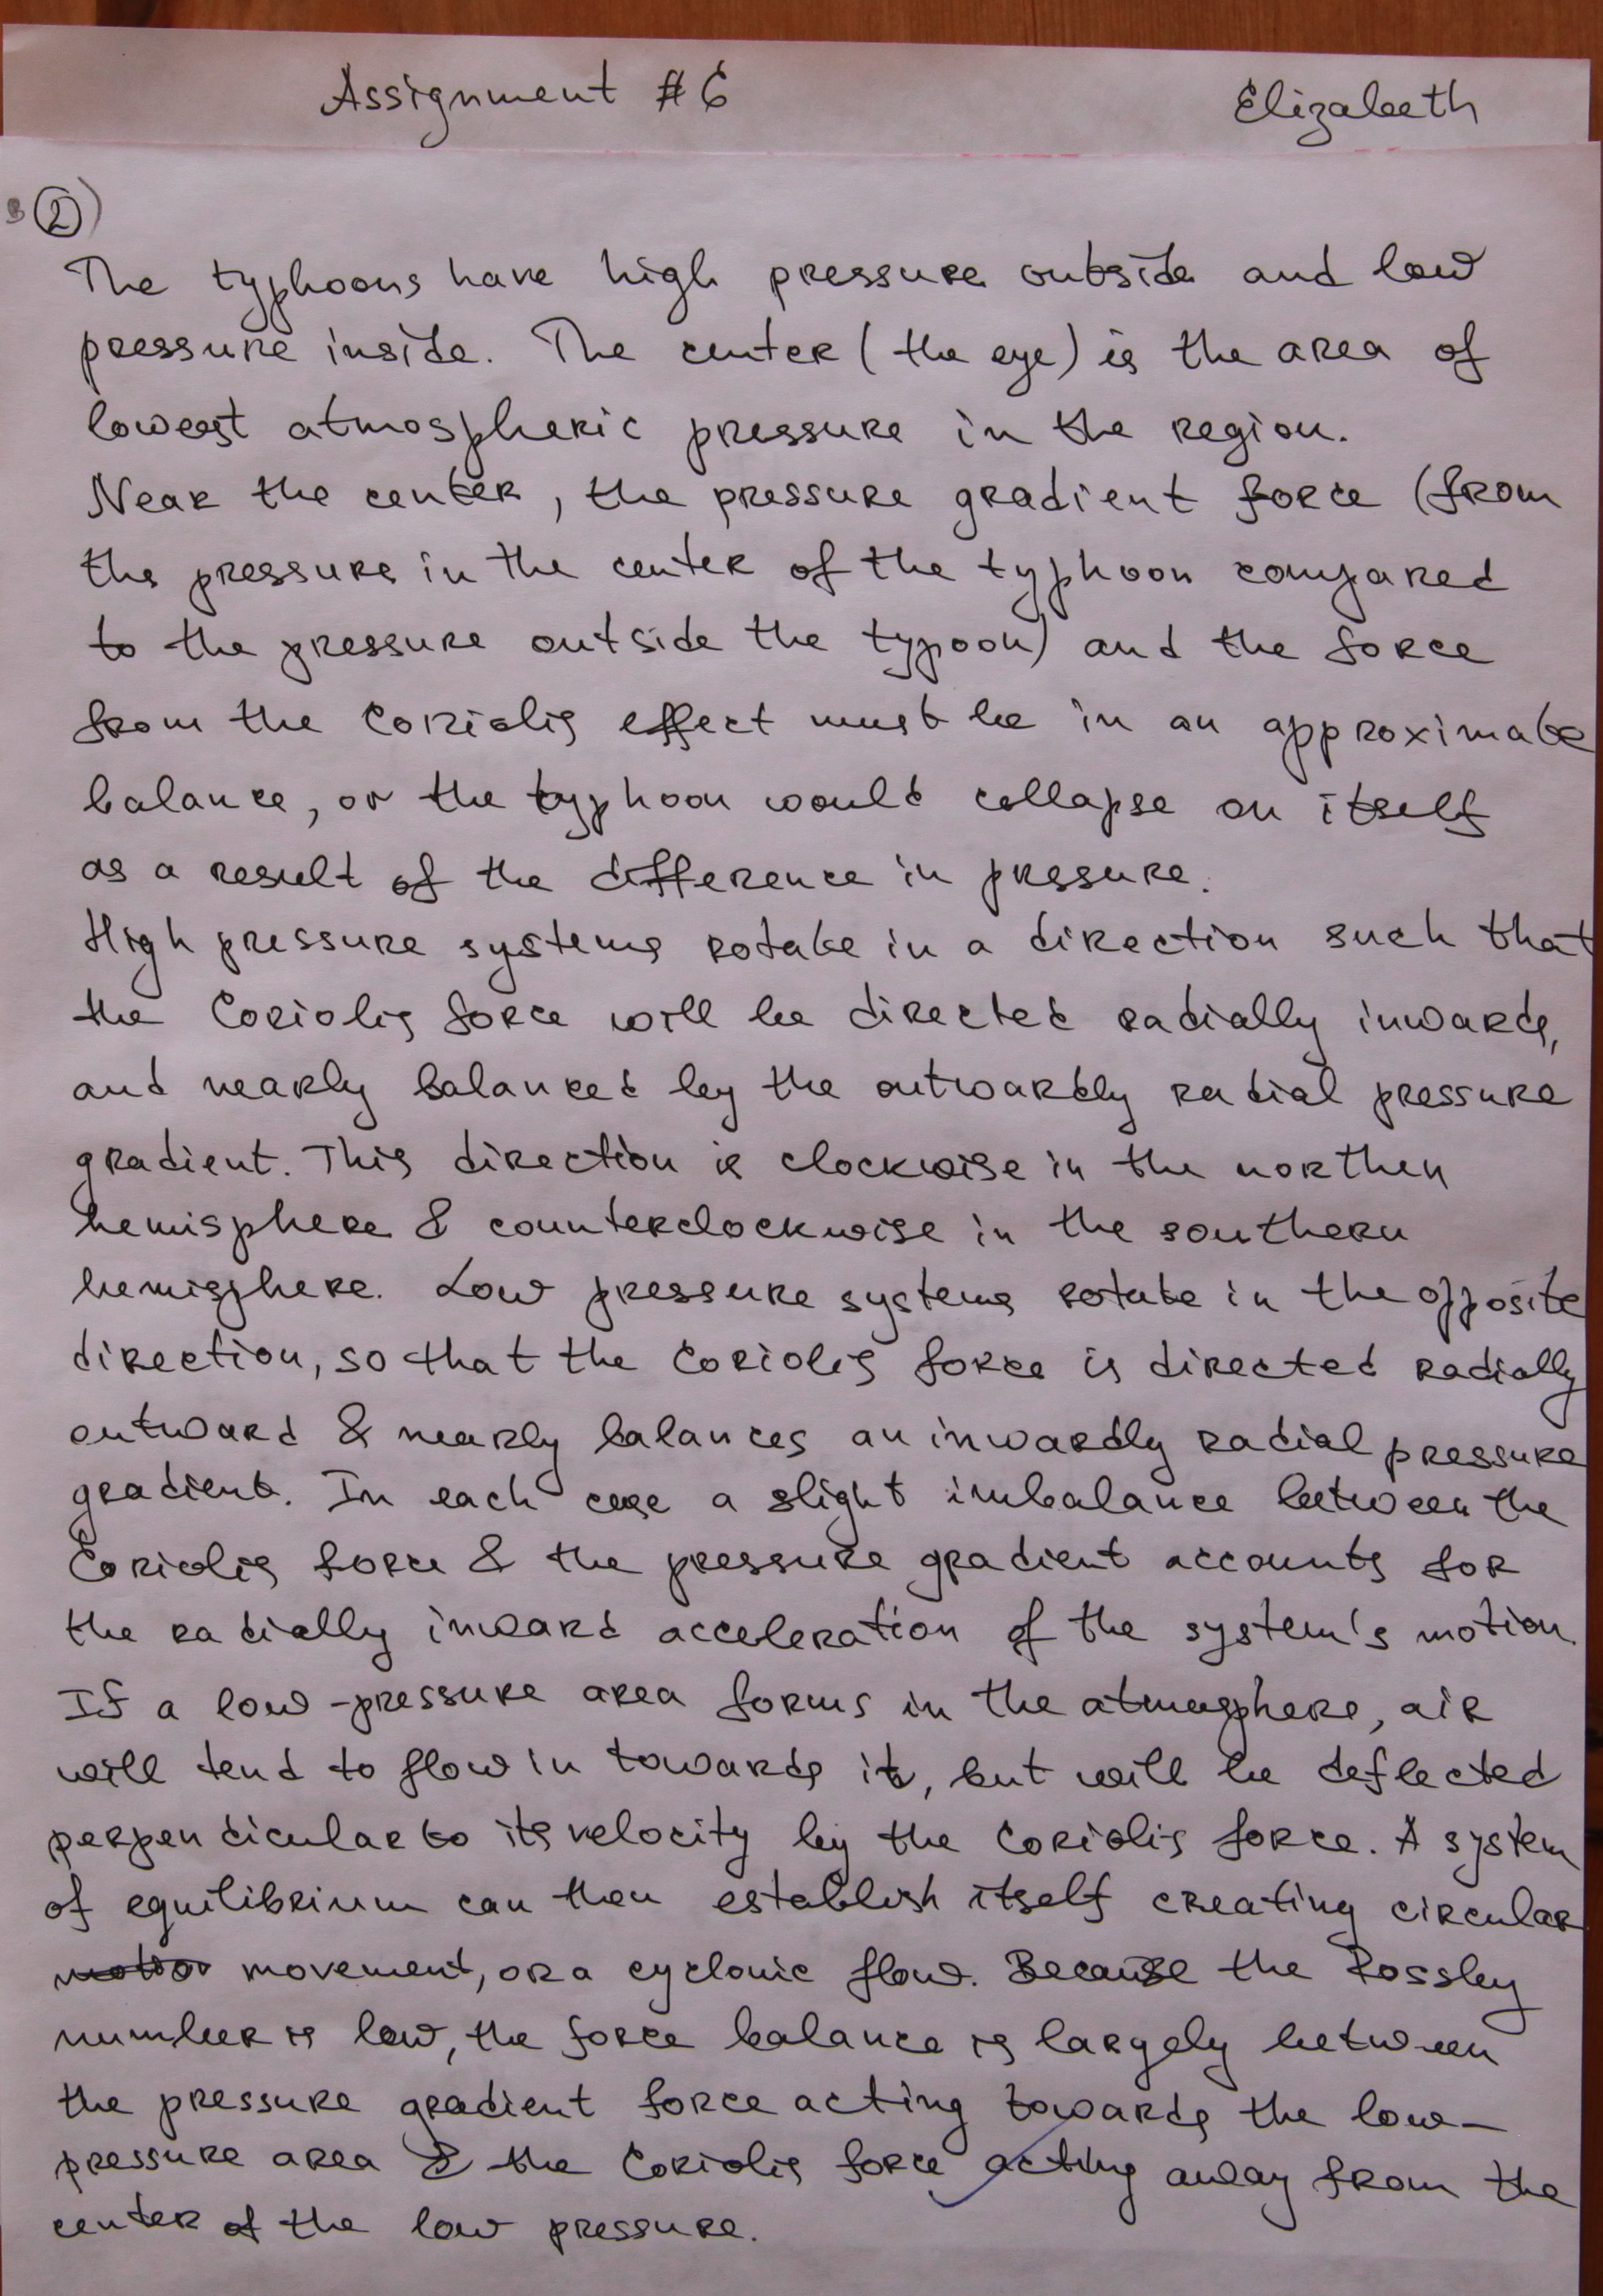 Assignment #6
Elizabeth
2)
The typhoons have high pressure outside and low
pressure inside. The center (the eye) is the area of
lowest atmospheric pressure in the region.
Near the center, the pressure gradient force (from
the pressure in the center of the typhoon compared
to the pressure outside the typoon) and the force
from the Coriolis effect must be in an approximate
balance, or the typhoon would collapse on itself
as a result of the difference in pressure.
High pressure systems rotate in a direction such that
the Coriolis force will be directed radially inwards,
and nearly balanced by the outwardly radial pressure
gradient. This direction is clockwise in the northen
hemisphere & counterclockwise in the southern
hemisphere. Low pressure systems rotate in the opposite
direction, so that the Coriolis force is directed radially
outward & nearly balances an inwardly radial pressure
gradient. In each case a slight imbalance between the
Coriolis force & the pressure gradient accounts for
the radially inward acceleration of the system's motion.
If a low-pressure area forms in the atmosphere, air
will tend to flow in towards it, but will be deflected
perpendicular to its velocity by the Coriolis force. A system
of equilibrium can then establish itself creating circular
motion movement, or a cyclonic flow. Because the Rossby
number is low, the force balance is largely between
the pressure gradient force acting towards the low-
pressure area & the Coriolis force acting away from the
center of the low pressure.